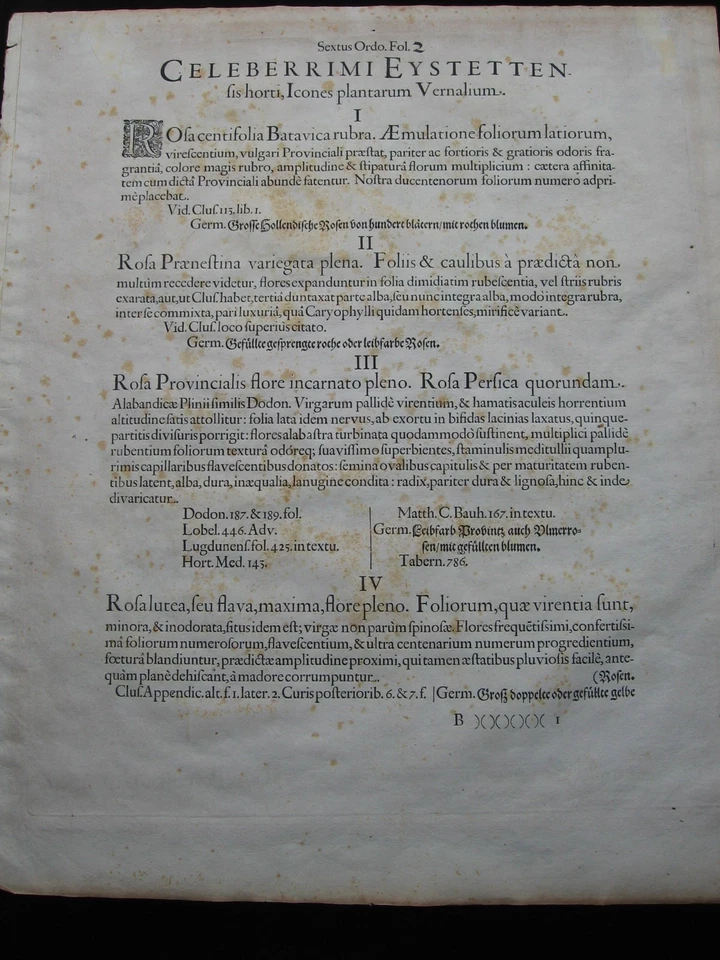 Sextus Ordo. Fol. 2
CELEBERRIMI EYSTETTEN-
ſis horti, Icones plantarum Vernalium.
I
ROſa centifolia Batavica rubra. Æmulatione foliorum latiorum,
vireſcentium, vulgari Provinciali præſtat, pariter ac fortioris & gratioris odoris fra-
grantiâ, colore magis rubro, amplitudine & ſtipaturâ florum multiplicium : cætera affinita-
tem cum dictâ Provinciali abundè fatentur. Noſtra ducentenorum foliorum numerō adpri-
mè placebat.
Vid. Cluſ. 113. lib. 1.
Germ. Groſſe Hollendiſche Roſen von hundert blätern/mit rothen blumen.
II
Roſa Præneſtina variegata plena. Foliis & caulibus à prædictâ non
multùm recedere videtur, flores expanduntur in folia dimidiatim rubeſcentia, vel ſtriis rubris
exarata, aut, ut Cluſ. habet, tertiâ duntaxat parte alba, ſeu nunc integra alba, modò integra rubra,
inter ſe commixta, pari luxuriâ, quâ Caryophylli quidam hortenſes, mirificè variant.
Vid. Cluſ. loco ſuperiùs citato.
Germ. Gefüllte geſprengte rothe oder leibfarbe Roſen.
III
Roſa Provincialis flore incarnato pleno. Roſa Perſica quorundam.
Alabandicæ Plinii ſimilis Dodon. Virgarum pallidè virentium, & hamatis aculeis horrentium
altitudine ſatis attollitur: folia lata idem nervus, ab exortu in bifidas lacinias laxatus, quinque-
partitis diviſuris porrigit: flores alabaſtra turbinata quodammodò ſuſtinent, multiplici pallidè
rubentium foliorum texturâ odóreq; ſuaviſſimo ſuperbientes, ſtaminulis meditullii quamplu-
rimis capillaribus flaveſcentibus donatos: ſemina ovalibus capitulis & per maturitatem ruben-
tibus latent, alba, dura, inæqualia, lanugine condita : radix, pariter dura & lignoſa, hinc & inde
divaricatur.
Dodon. 187. & 189. fol.
Lobel. 446. Adv.
Lugdunenſ. fol. 425. in textu.
Hort. Med. 145.
Matth. C. Bauh. 167. in textu.
Germ. Leibfarb Provintz auch Ulmerro-
ſen/mit gefüllten blumen.
Tabern. 786.
IV
Roſa lutea, ſeu flava, maxima, flore pleno. Foliorum, quæ virentia ſunt,
minora, & inodorata, ſitus idem eſt; virgæ non parùm ſpinoſæ. Flores frequētiſſimi, confertiſſi-
mâ foliorum numeroſorum, flaveſcentium, & ultra centenarium numerum progredientium,
fœturâ blandiuntur, prædictæ amplitudine proximi, qui tamen æſtatibus pluvioſis facilè, ante-
quàm planè dehiſcant, à madore corrumpuntur.
(Roſen.
Cluſ. Appendic. alt. f. 1. later. 2. Curis poſteriorib. 6. & 7. f. | Germ. Groß doppelte oder gefüllte gelbe
B )()()()()( 1